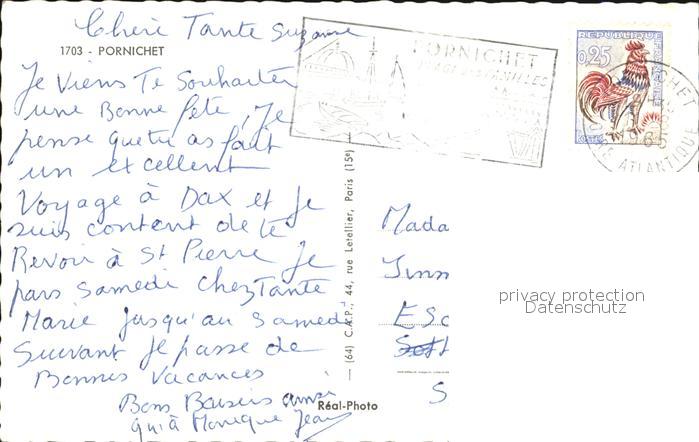 Chère Tante Suzanne
1703 - PORNICHET
Je Viens Te Souhaiter
une Bonne fête, Je
pense que tu as fait
un excellent
Voyage à Dax et Je
suis content de te
Revoir à St Pierre Je
pars Samedi chez Tante
Marie jusqu'au Samedi
Suivant Je passe de
Bonnes Vacances
Bons Baisers ainsi
qu'à Monique Jean
Réal-Photo
(64) C.A.P., 44, rue Letellier, Paris (15e)
PORNICHET
REPUBLIQUE FRANÇAISE
0,25
POSTES
ATLANTIQUE
Mada
ESC
S
privacy protection
Datenschutz